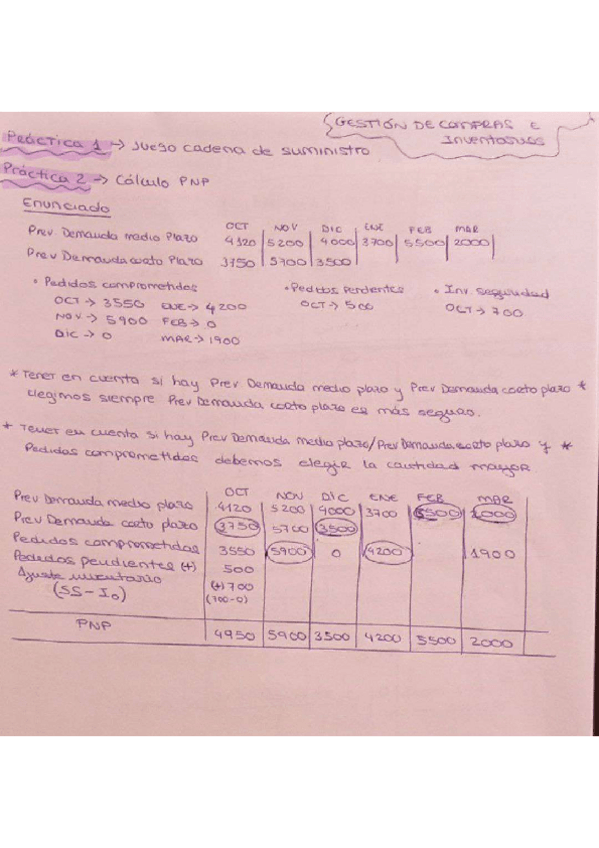 GESTIÓN DE COMPRAS E
INVENTARIOS
PRÁCTICA 1 → JUEGO cadena de suministro
PRÁCTICA 2 → Cálculo PNP
ENUNCIADO
OCT NOV DIC ENE FEB MAR
Prev Demanda medio Plazo 4120 5200 4000 3700 5500 2000
Prev Demanda corto Plazo 3750 5700 3500
• Pedidos comprometidos • Pedidos Pendientes • Inv. seguridad
OCT → 3550 ENE → 4200 OCT → 500 OCT → 700
NOV → 5900 FEB → 0
DIC → 0 MAR → 1900
* Tener en cuenta si hay Prev Demanda medio plazo y Prev Demanda corto plazo *
elegimos siempre Prev Demanda corto plazo es más seguro.
* Tener en cuenta si hay Prev Demanda medio plazo/Prev Demanda corto plazo y *
Pedidos comprometidos debemos elegir la cantidad mayor
OCT NOV DIC ENE FEB MAR
Prev Demanda medio plazo 4120 5200 4000 3700 5500 2000
Prev Demanda corto plazo 3750 5700 3500
Pedidos comprometidos 3550 5900 0 4200 1900
Pedidos pendientes (+) 500
Ajuste inventario (+) 700
(SS - I₀) (700-0)
PNP 4950 5900 3500 4200 5500 2000